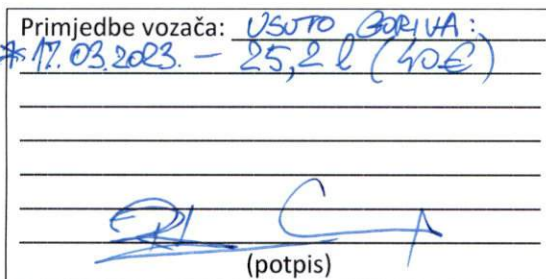 Primjedbe vozača: USUTO GORIVA:
* 17.03.2023. – 25,2 l (40€)
(potpis)